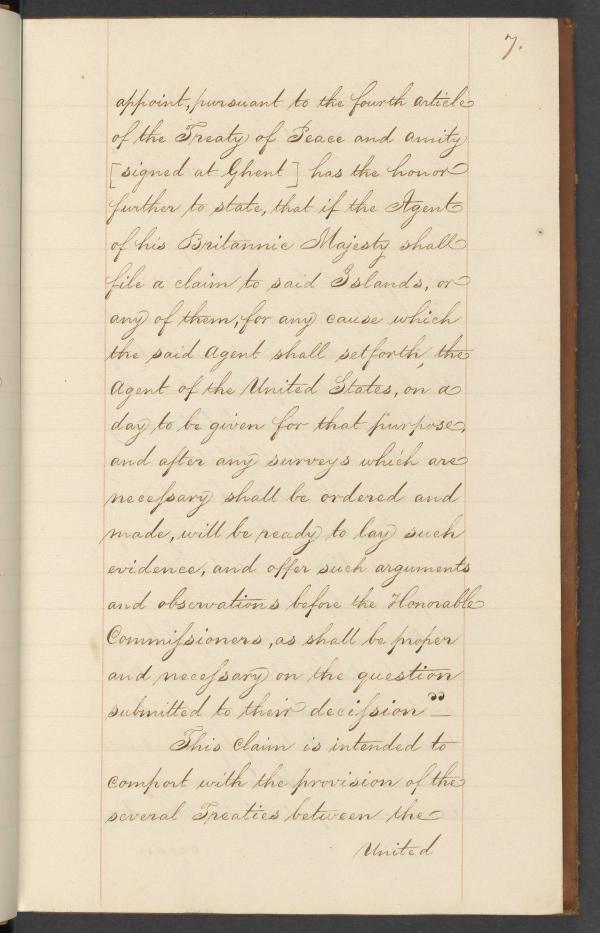 7.
appoint, pursuant to the fourth article
of the Treaty of Peace and amity
[signed at Ghent] has the honor
further to state, that if the Agent
of his Britannic Majesty shall
file a claim to said Islands, or
any of them, for any cause which
the said Agent shall setforth, the
Agent of the United States, on a
day to be given for that purpose,
and after any surveys which are
necessary shall be ordered and
made, will be ready to lay such
evidence, and offer such arguments
and observations before the Honorable
Commissioners, as shall be proper
and necessary on the question
submitted to their decission" —
This claim is intended to
comport with the provision of the
several Treaties between the
United